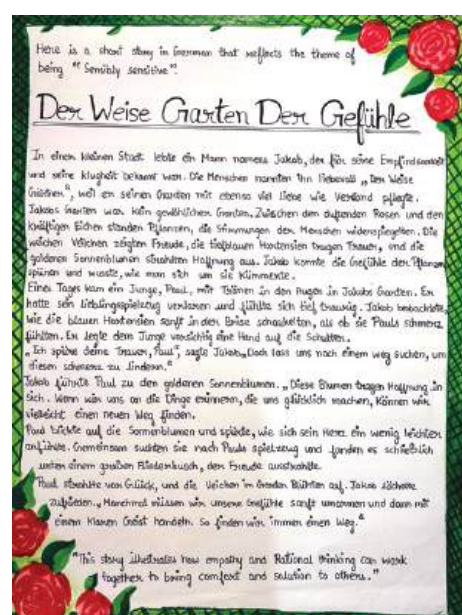 Here is a short story in German that reflects the theme of
being "Sensibly sensitive".
Der Weise Garten Der Gefühle
In einer kleinen Stadt lebte ein Mann namens Jakob, der für seine Empfindsamkeit
und seine Klugheit bekannt war. Die Menschen nannten ihn liebevoll „Den Weise
Gärtner", weil er seinen Garten mit ebenso viel Liebe wie Verstand pflegte.
Jakobs Garten war kein gewöhnlicher Garten. Zwischen den duftenden Rosen und den
kräftigen Eichen standen Pflanzen, die Stimmungen der Menschen widerspiegelten. Die
weichen Veilchen zeigten Freude, die tiefblauen Hortensien trugen Trauer, und die
goldenen Sonnenblumen strahlten Hoffnung aus. Jakob konnte die Gefühle der Pflanzen
spüren und wusste, wie man sich um sie kümmerte.
Eines Tages kam ein Junge, Paul, mit Tränen in den Augen in Jakobs Garten. Er
hatte sein Lieblingsspielzeug verloren und fühlte sich tief traurig. Jakob beobachtete,
wie die blauen Hortensien sanft in der Brise schaukelten, als ob sie Pauls schmerz
fühlten. Er legte dem Junge vorsichtig eine Hand auf die Schulter.
„Ich spüre deine Trauer, Paul", sagte Jakob, „Doch lass uns nach einem weg suchen, um
diesen schmerz zu lindern."
Jakob führte Paul zu den goldenen Sonnenblumen. „Diese Blumen tragen Hoffnung in
sich. Wenn wir uns an die Dinge erinnern, die uns glücklich machen, können wir
vielleicht einen neuen Weg finden.
Paul blickte auf die Sonnenblumen und spürte, wie sich sein Herz ein wenig leichter
anfühlte. Gemeinsam suchten sie nach Pauls spielzeug und fanden es schließlich
unter einem großen Fliederbusch, der Freude ausstrahlte.
Paul strahlte vor Glück, und die Veilchen im Garten blühten auf. Jakob lächelte
zufrieden. „Manchmal müssen wir unsere Gefühle sanft umarmen und dann mit
einem klaren Geist handeln. So finden wir immer einen Weg."
"This story illustrates how empathy and Rational thinking can work
together to bring comfort and solution to others."